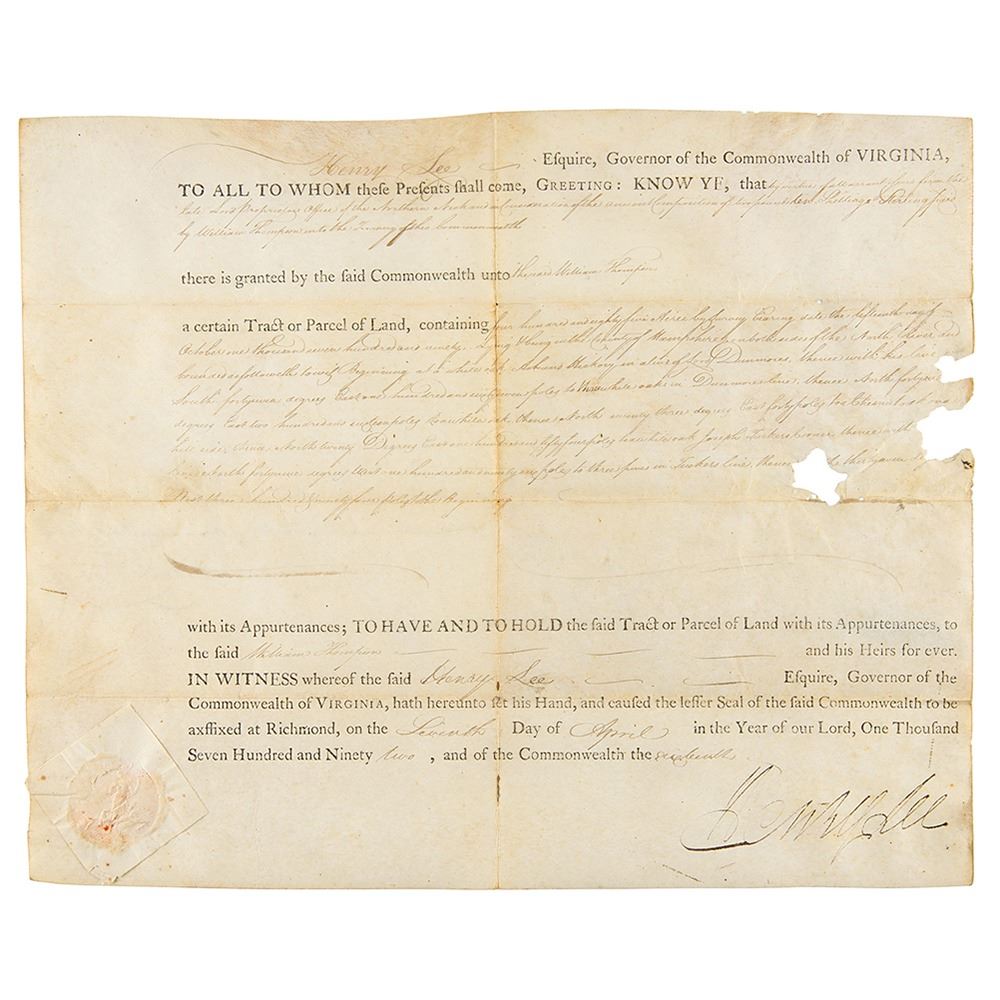 Henry Lee Eſquire, Governor of the Commonwealth of VIRGINIA,
TO ALL TO WHOM theſe Preſents ſhall come, GREETING: KNOW YE, that by virtue of a Warrant from the
late Lord Proprietors Office of the Northern Neck and in Consideration of the ancient Composition of two pounds ten Shillings Sterling paid
by William Thompson into the Treasury of this Commonwealth
there is granted by the ſaid Commonwealth unto the said William Thompson
a certain Tract or Parcel of Land, containing four hundred and eighty five Acres by survey bearing date the fifteenth day of
October one thousand seven hundred and ninety lying & being in the County of Hampshire on both sides of the North River and
bounded as followeth to wit Beginning at a white oak and Hickory in a line of Lord Dunmores, thence with his line
South forty degrees East one hundred and poles to three white oaks in Dunmores line, thence North forty
degrees East two hundred and sixteen poles to a white oak thence North seventy three degrees East forty poles to a Chesnut oak on a
hill side thence North twenty Degrees East one hundred and fifty four poles to a white oak Joseph Tuckers Corner thence with
line North forty degrees West one hundred and ninety poles to three pines in Tuckers line, thence thirty seven
West three hundred & ninety four Poles to the Beginning
with its Appurtenances; TO HAVE AND TO HOLD the ſaid Tract or Parcel of Land with its Appurtenances, to
the ſaid William Thompson and his Heirs for ever.
IN WITNESS whereof the ſaid Henry Lee Eſquire, Governor of the
Commonwealth of VIRGINIA, hath hereunto ſet his Hand, and cauſed the leſſer Seal of the ſaid Commonwealth to be
axffixed at Richmond, on the Seventh Day of April in the Year of our Lord, One Thouſand
Seven Hundred and Ninety two, and of the Commonwealth the sixteenth
Henry Lee